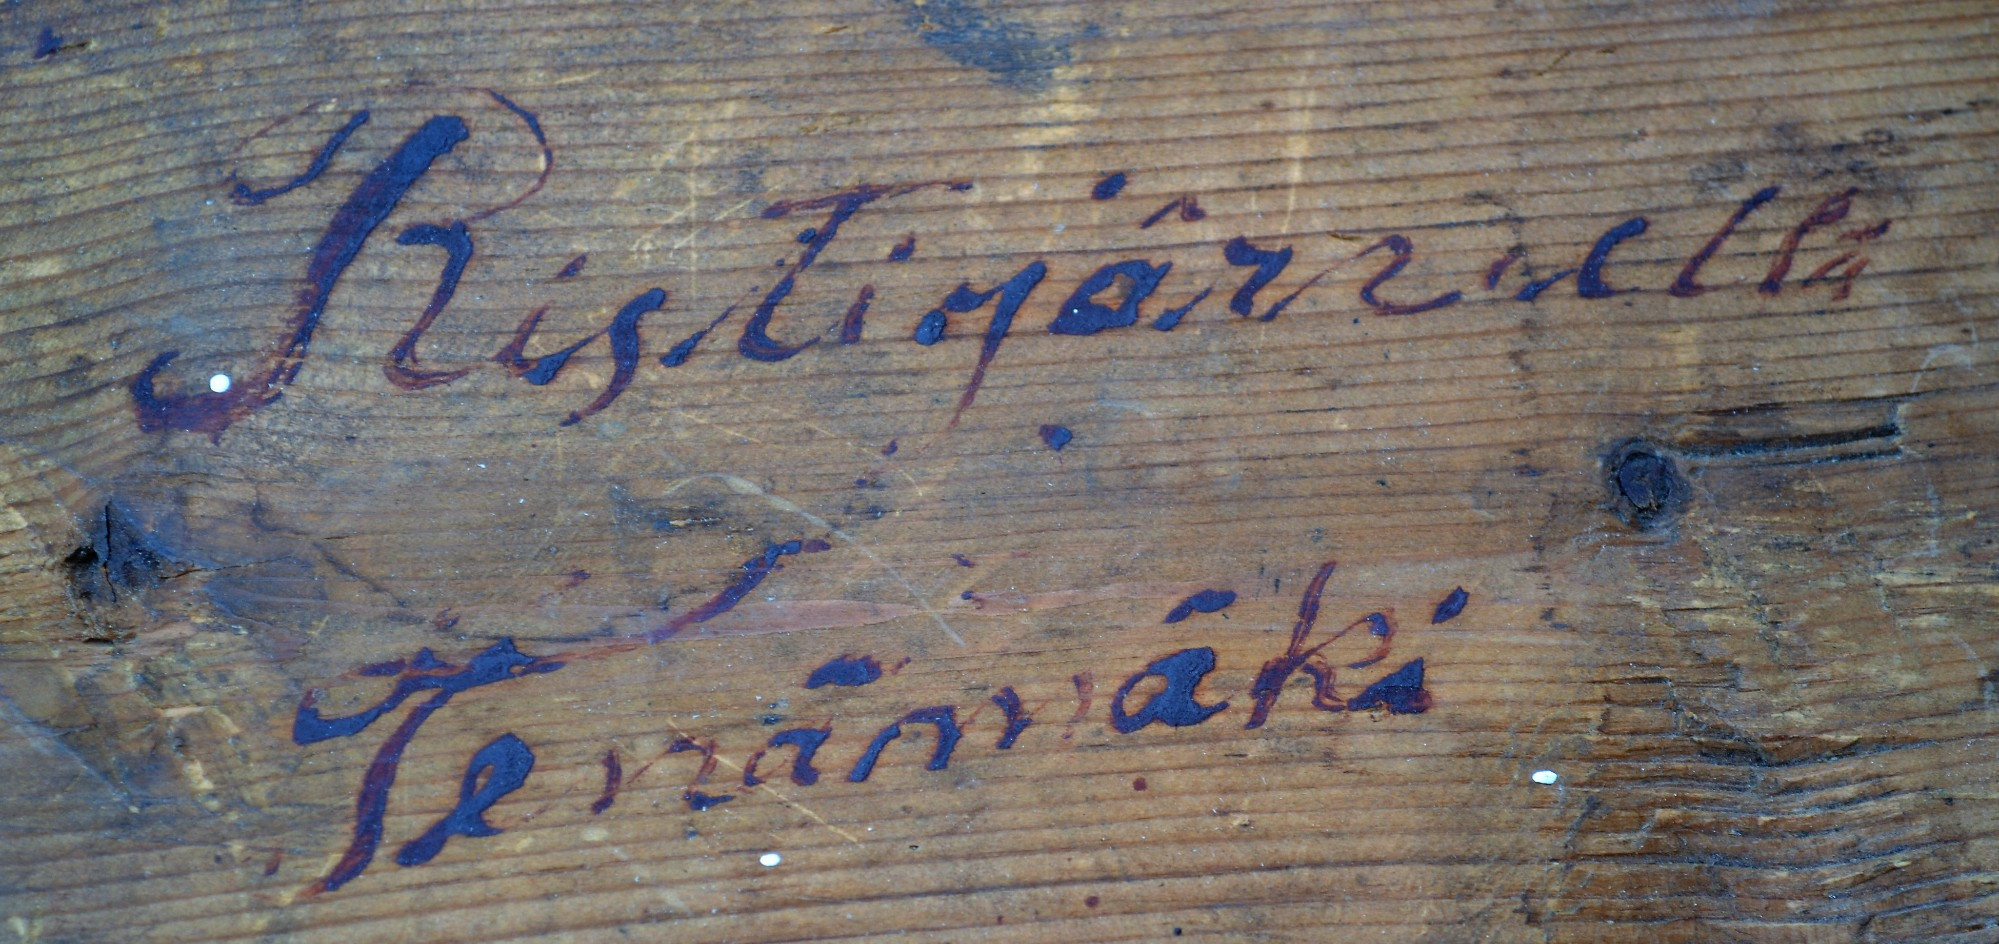 Ristijärvellä
Terämäki